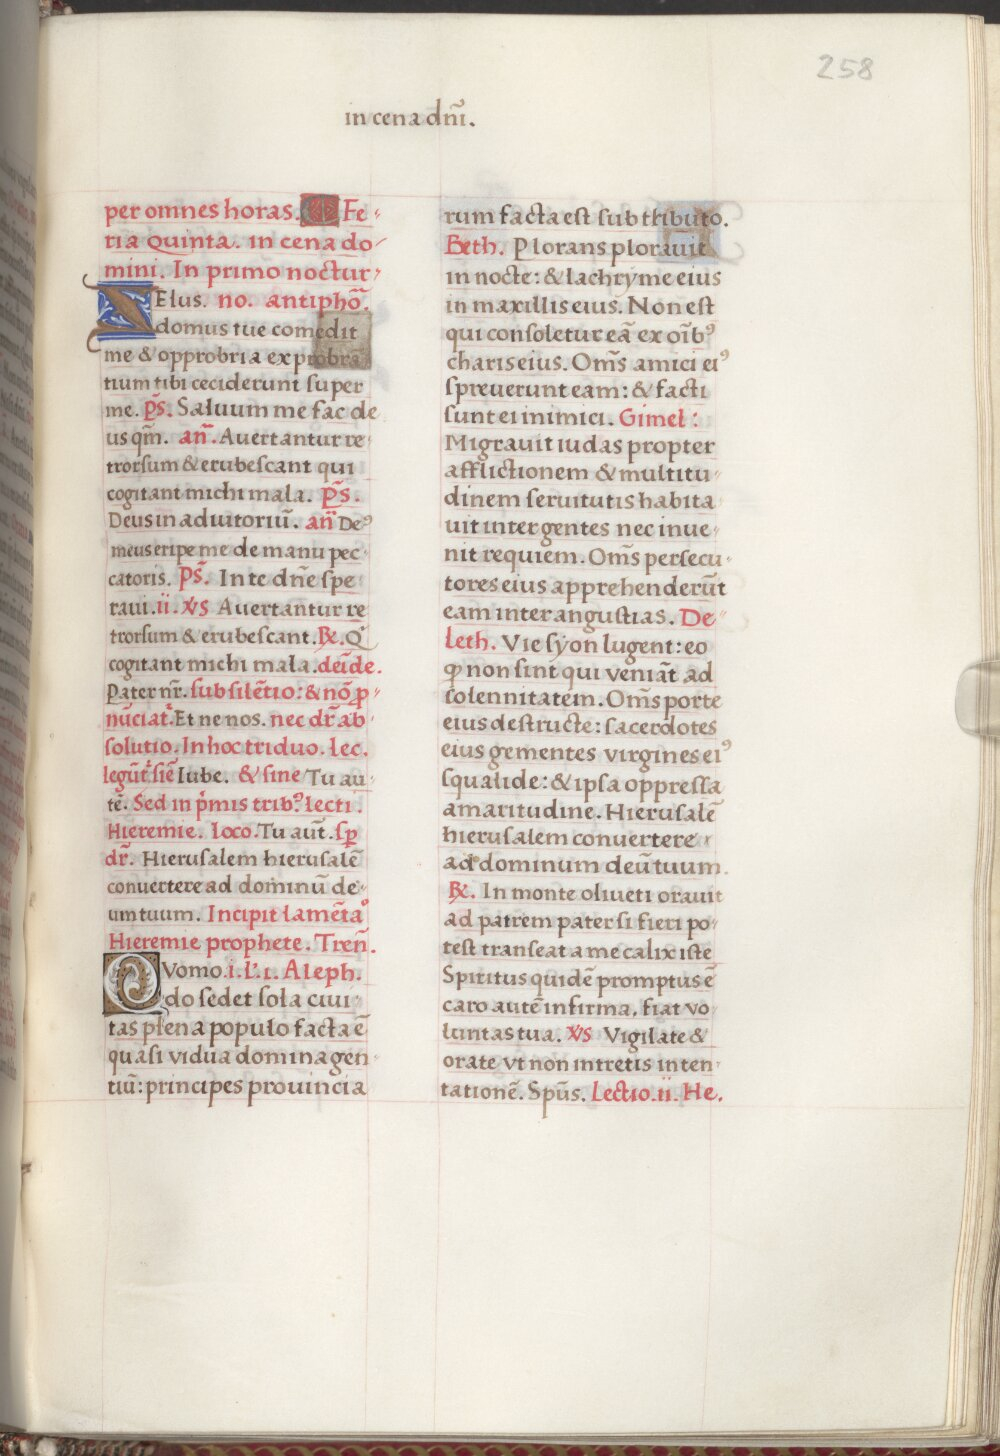 258
in cena dñi.
per omnes horas. Fe-
ria quinta. in cena do-
mini. In primo noctur-
Zelus. no. antipho̅.
domus tue comedit
me & opprobria exprobra
tium tibi ceciderunt super
me. ps̅. Saluum me fac de
us qm̅. an̅. Auertantur re-
trorsum & erubescant qui
cogitant michi mala. ps̅.
Deus in adiutoriu̅. an̅ Deꝰ
meus eripe me de manu pec-
catoris. Ps̅. In te dn̅e spe-
raui. ii. ꝟs Auertantur re
trorsum & erubescant. ℞. Q
cogitant michi mala. dei̅de.
Pater nr̅. sub sile̅tio: & no̅ p-
nu̅ciat. Et ne nos. nec dr̅ ab-
solutio. In hoc triduo. lec.
legu̅t sie̅ Iube. & sine Tu au-
te̅. Sed in pͥmis tribꝰ lecti.
Hieremie. loco. Tu aut̅. sꝑ
dr̅. Hierusalem hierusale̅
conuertere ad dominu̅ de-
um tuum. Incipit lame̅ta
Hieremie prophete. Tren̅.
Quomo. i. l'. 1. Aleph.
do sedet sola ciui-
tas plena populo facta e̅
quasi vidua domina gen-
tiu̅: principes prouincia
rum facta est sub thibuto.
Beth. Plorans plorauit
in nocte: & lachryme eius
in maxillis eius. Non est
qui consoletur ea̅ ex oi̅bꝰ
charis eius. Om̅s amici eiꝰ
spreuerunt eam: & facti
sunt ei inimici. Gimel:
Migrauit iudas propter
afflictionem & multitu-
dinem seruitutis habita-
uit inter gentes nec inue-
nit requiem. Om̅s persecu-
tores eius apprehenderu̅t
eam inter angustias. De-
leth. Vie syon lugent: eo
ꝙ non sint qui venia̅t ad
solennitatem. Om̅s porte
eius destructe: sacerdotes
eius gementes virgines eiꝰ
squalide: & ipsa oppressa
amaritudine. Hierusale̅
hierusalem conuertere
ad dominum deu̅ tuum.
℞. In monte oliueti orauit
ad patrem pater si fieri po-
test transeat a me calix iste
Spiritus quide̅ promptus e̅
caro aute̅ infirma, fiat vo-
luntas tua. ꝟs Vigilate &
orate vt non intretis in ten-
tatione̅. Spu̅s. Lectio. ii. He.